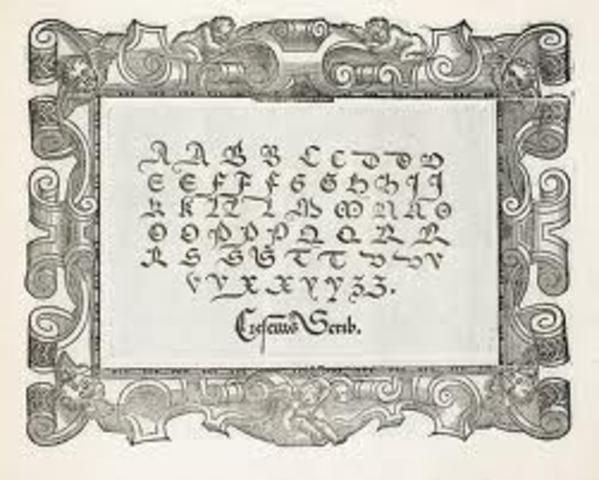 A A B B C C D D D
E E F F F G G H H I I
K K L L L M M N N O
O O P P P Q Q R R
R S S S T T V V V
V V X X X Y Y Z Z.
Cresciius Scrib.